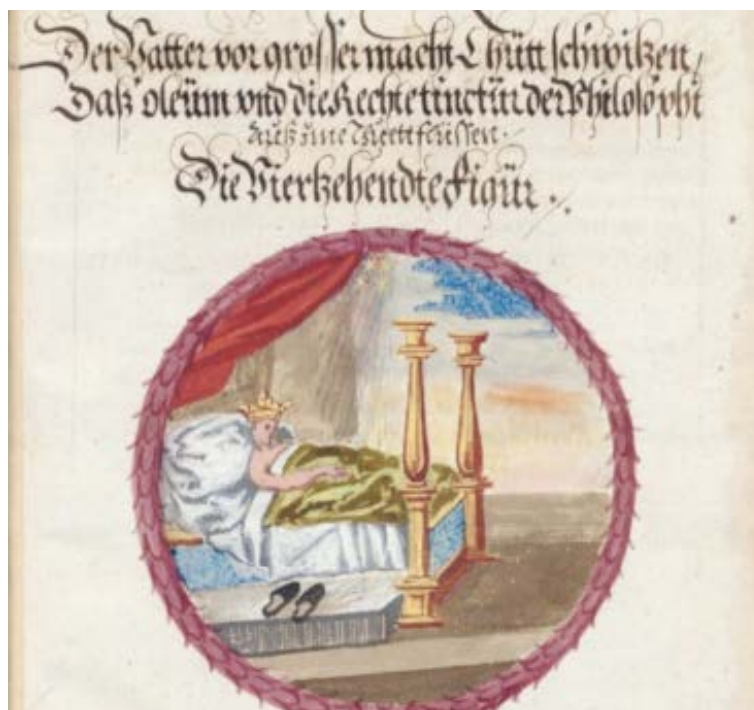 Der Vatter vor grosser macht Thütt schwitzen,
Daß oleüm vnd die Rechte tinctür der Philosophi
auß ime
Die Viertzehendte Figür.